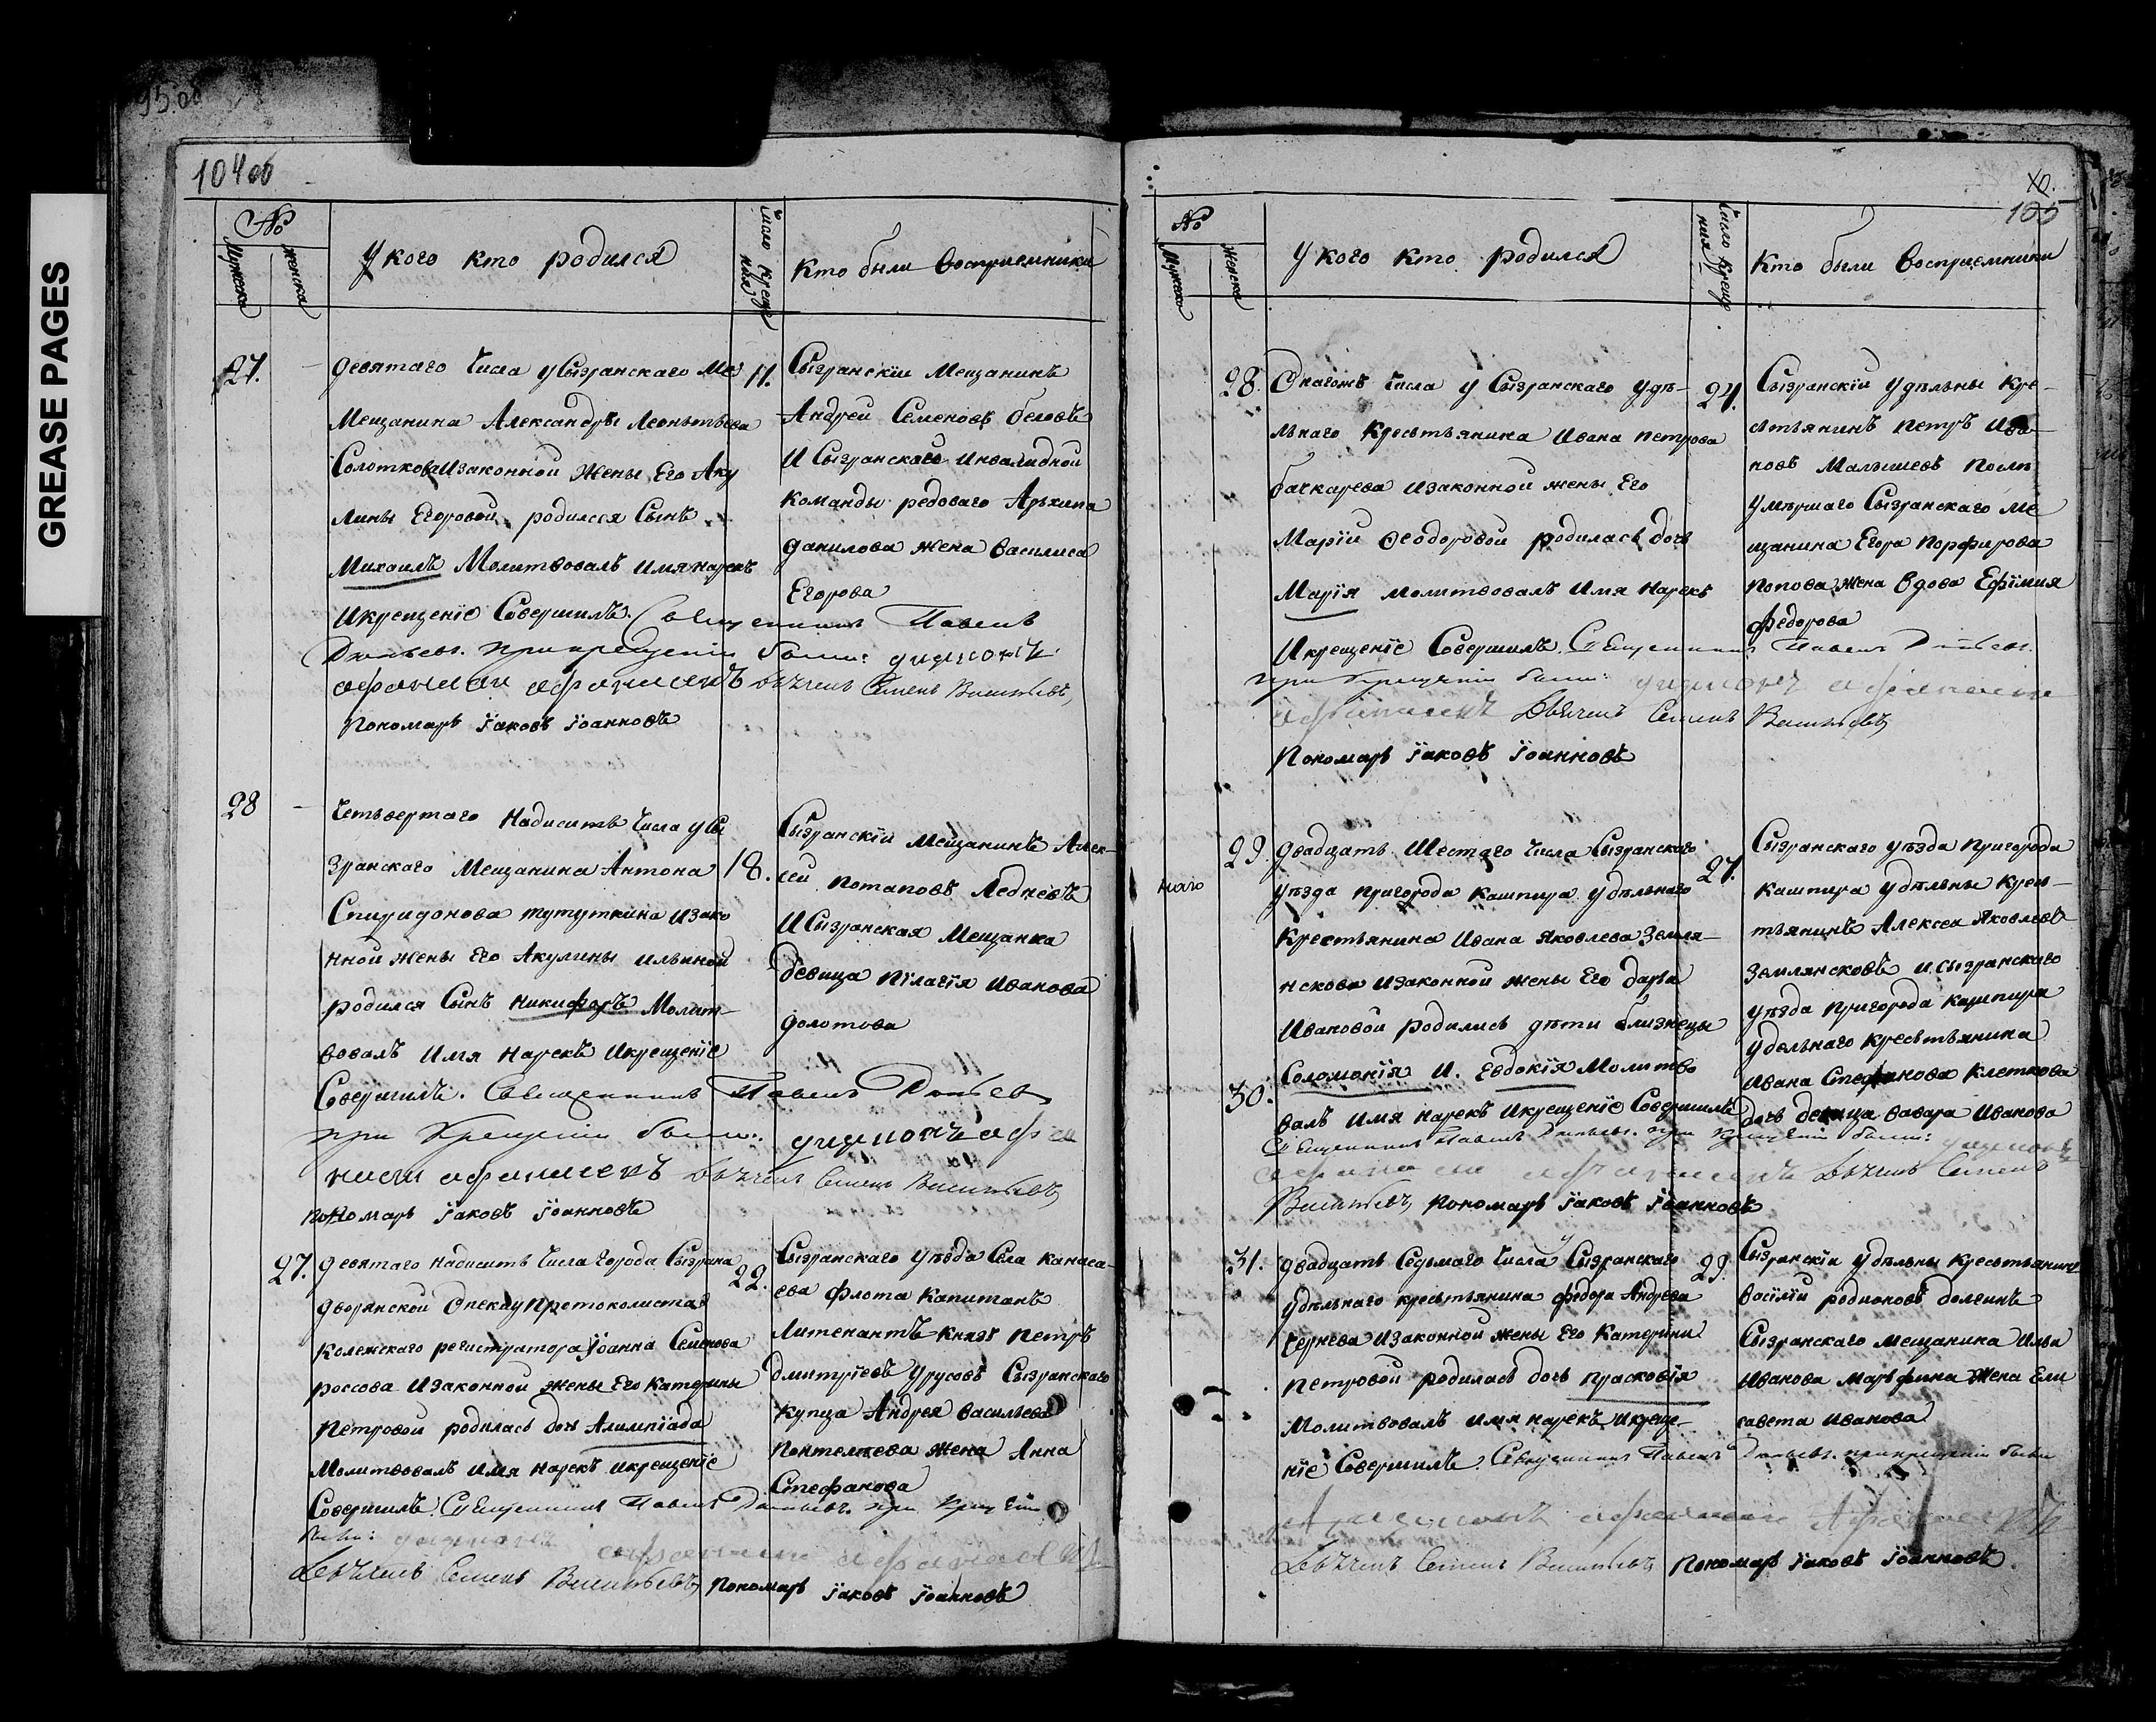 GREASE PAGES
95.об
104об
№
Мужеска
женска
У кого кто родился
Число креще
ния
Кто были восприемники
27.
девятаго Числа у Сызранскаго Ме
Мещанина Александра Леонтьева
Солоткова изаконной Жены Его Аку
лины Егоровой родился Сынъ
Михаилъ Молитвовалъ имя нарекъ
Икрещенїе Совершилъ. Священникъ Павелъ
при крещенїи были: диаконъ
Пономарь Їаковъ Їоанновъ
11.
Сызранскїи Мещанинъ
Андреи Семеновъ беловъ
И Сызранской инвалидной
команды редоваго Архипа
данилова жена василиса
Егорова
28
Четвертаго Надисить Числа у Сы
зранскаго Мещанина Антона
Спиридонова тутуткина изако
нной жены Его Акулины ильиной
родился Сынъ Никифоръ Молит-
вовалъ имя нарекъ Икрещенїе
Совершилъ. Священникъ Павелъ
при Крещенїи были: диаконъ
Пономарь Їаковъ Їоанновъ
18.
Сызранскїи Мещанинъ Алек-
сеи потаповъ Ледневъ
И Сызранская Мещанка
девица пїлагїя иванова
долотова
27.
девятаго надисить Числа города Сызрана
дворянской Опеки у Протоколиста
колежскаго регистратора Їоанна Семенова
россова изаконной жены Его Катерины
Петровой родилась дочь Алимпїада
Молитвовалъ имя нарекъ икрещенїе
Совершилъ. Священникъ Павелъ при Крещенїи
были: диаконъ
Семенъ Васильевъ, пономарь Їаковъ Їоанновъ
22.
Сызранскаго уѣзда Села Канаса-
ева флота Капитанъ
Литенантъ Князь Петръ
дмитрїевъ Урусовъ Сызранскаго
купца Андрея васильева
Пантелеева жена Анна
Стефанова
105
№
Мужеска
Женска
У кого кто родился
Число креще
ния
Кто были восприемники
28.
Снагожъ Числа у Сызранскаго Удѣ-
льнаго Крестьянина ивана петрова
бачкарева изаконной жены Его
Марїи Феодоровой родилась дочь
Марїя молитвовалъ имя Нарекъ
Икрещенїе Совершилъ. Священникъ Павелъ
при Крещенїи были: диаконъ
Семенъ Васильевъ
Пономарь Їаковъ Їоанновъ
24.
Сызранскїи удѣльны кре-
стьянинъ петръ ива
новъ Малышевъ после
умершаго Сызранскаго Ме
щанина Егора Порфирова
попова жена вдова Ефїмия
федорова
29.
двадцать Шестаго Числа Сызранскаго
уѣзда пригорода кашпира удѣльнаго
Крестьянина ивана Яковлева Земля-
нскова изаконной жены Его дарьи
ивановой родились дѣти близнецы
30.
Соломонїя И. Евдокїя Молитво
валъ имя нарекъ Икрещенїе Совершилъ
Священникъ Павелъ при Крещенїи были: диаконъ
Семенъ
Васильевъ, Пономарь Їаковъ Їоанновъ
27.
Сызранскаго уѣзда пригорода
кашпира удѣльны крес-
тьянинъ Алексеи Яковлевъ
Землянсковъ и Сызранскаго
уѣзда пригорода кашпира
удельнаго крестьянина
ивана Стефанова Клеткова
дочь девица вавара иванова
31.
двадцать Седьмаго Числа у Сызранскаго
удѣльнаго крестьянина федора Андрева
Чернева изаконной жены Его Катерины
Петровой родилась дочь прасковїя
Молитвовалъ имя нарекъ икреще-
нїе Совершилъ. Священникъ Павелъ прикрещенїи были
Семенъ Васильевъ, Пономарь Їаковъ Їоанновъ
29.
Сызранскїи удѣльны Крестьянинъ
василїи родионовъ долгинъ
Сызранскаго мещанина ильи
иванова Марьфина жена Ели
савета иванова